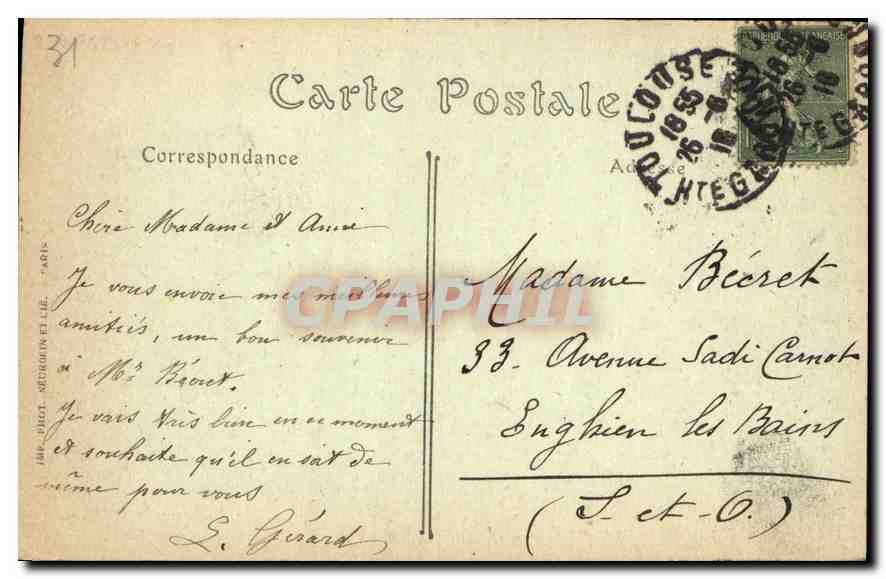 31
Carte Postale
Correspondance
Adresse
RÉPUBLIQUE FRANÇAISE
TOULOUSE
18 35
26 - 6
18
HTE GARONNE
Chère Madame et Amie
Je vous envoie mes meilleures
amitiés, un bon souvenir
à Mr Bécret.
Je vais très bien en ce moment
et souhaite qu'il en soit de
même pour vous
L. Gérard
Madame Bécret
33. Avenue Sadi Carnot
Enghien les Bains
(S.-et-O.)
IMP. PHOT. NEURDEIN ET CIE. PARIS
CPAPHIL